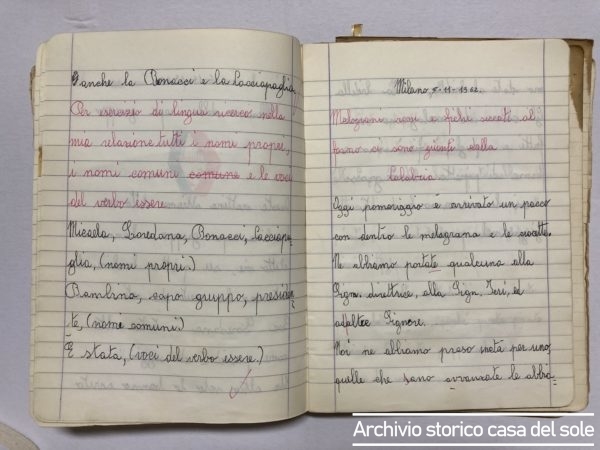 anche la Bonacci e la Lacciapaglia.
Per esercizio di lingua ricerco nella
mia relazione tutti i nomi propri,
i nomi comuni comune e le voci
del verbo essere.
Micaela, Loredana, Bonacci, Lacciapa-
glia, (nomi propri.)
Bambina, capo gruppo, presiden-
te, (nome comuni.)
È stata, (voci del verbo essere.)
Milano 11-1962.
Melograni rossi e fichi seccati al
forno ci sono giunti dalla
Calabria
Oggi pomeriggio è arrivato un pacco
con dentro le melograna e le
Ne abbiamo portate qualcuna alla
Sign. direttrice, alla Sign. Teri, ed
Signore.
Noi ne abbiamo preso metà per uno,
quelle che sono avvanzate le abbia-
Archivio storico casa del sole